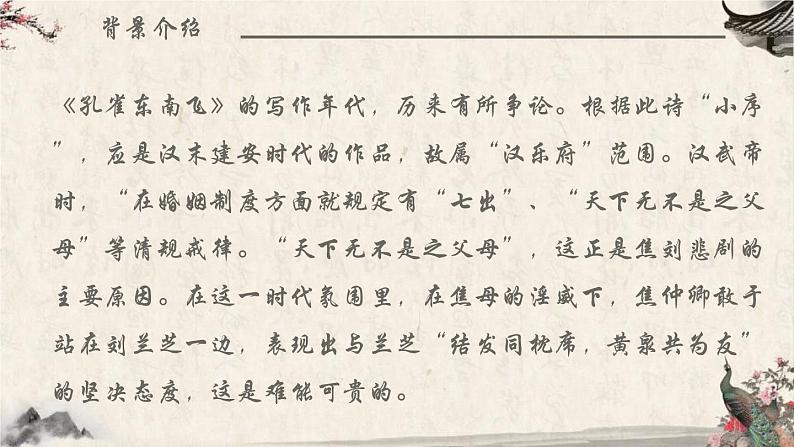 背景介绍
《孔雀东南飞》的写作年代，历来有所争论。根据此诗“小序
”，应是汉末建安时代的作品，故属“汉乐府”范围。汉武帝
时，“在婚姻制度方面就规定有“七出”、“天下无不是之父
母”等清规戒律。“天下无不是之父母”，这正是焦刘悲剧的
主要原因。在这一时代氛围里，在焦母的淫威下，焦仲卿敢于
站在刘兰芝一边，表现出与兰芝“结发同枕席，黄泉共为友”
的坚决态度，这是难能可贵的。